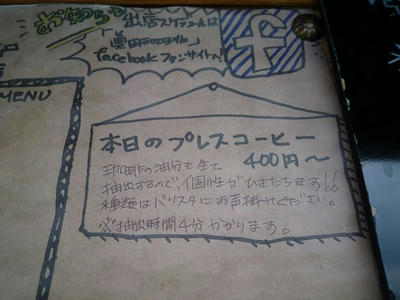 お知らせ
出店スケジュールは
facebookファンサイトへ!
f
MENU
本日のプレスコーヒー
400円〜
珈琲の油分も全て
抽出するので、個性がひきたちます!!
種類はバリスタにお声掛けください。
※抽出時間4分かかります。